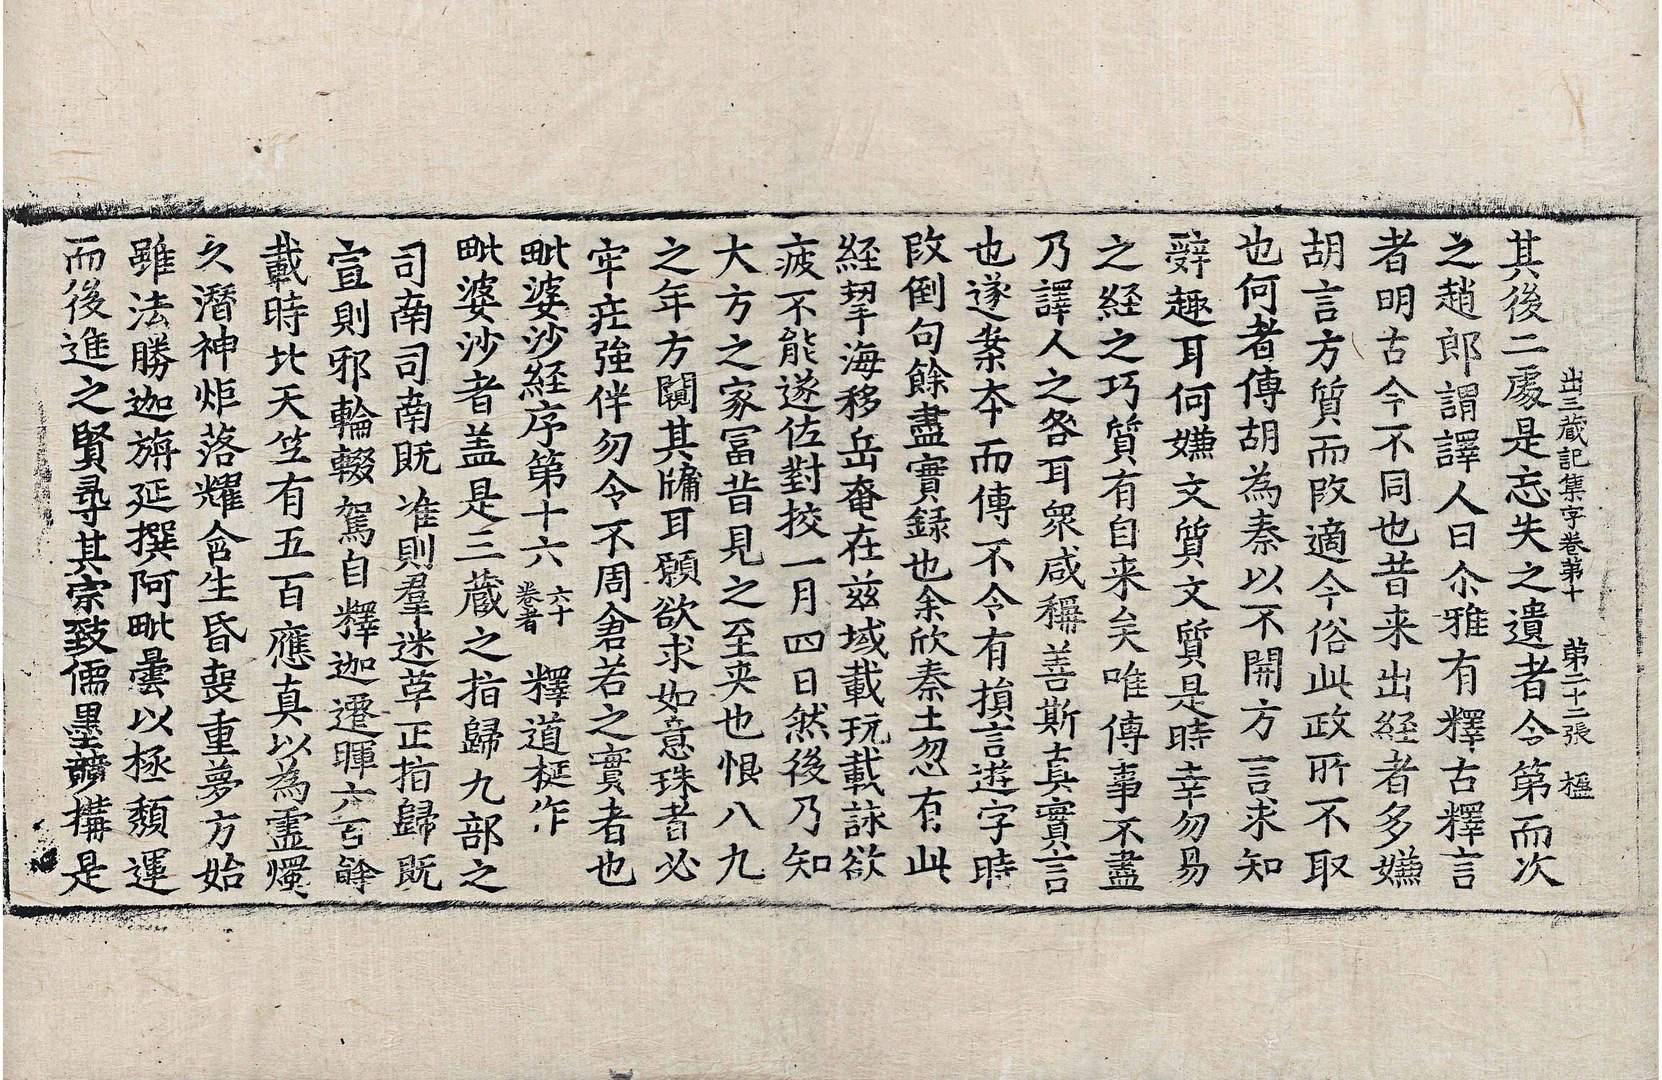 出三蔵記集字卷第十　第二十二張　樞
其後二處是忘失之遺者令第而次
之趙郎謂譯人曰尒雅有釋古釋言
者明古今不同也昔来出経者多嫌
胡言方質而改適今俗此政所不取
也何者傳胡為秦以不閑方言求知
辭趣耳何嫌文質文質是時幸勿易
之経之巧質有自来矣唯傳事不盡
乃譯人之咎耳衆咸稱善斯真實言
也遂案本而傳不令有損言遊字時
改倒句餘盡實録也余欣秦土忽有此
経挈海移岳奄在兹域載玩載詠欲
疲不能遂佐對挍一月四日然後乃知
大方之家冨昔見之至夹也恨八九
之年方闚其牗耳願欲求如意珠者必
牢莊強伴勿令不周倉若之實者也
毗婆沙経序第十六六十卷者　釋道梴作
毗婆沙者盖是三蔵之指歸九部之
司南司南既准則羣迷草正指歸既
宣則邪輪輟駕自釋迦遷暉六百餘
載時北天竺有五百應真以為靈燭
久潛神炬落耀含生昏喪重夢方始
雖法勝迦旃延撰阿毗曇以極頽運
而後進之賢尋其宗致儒墨競搆是